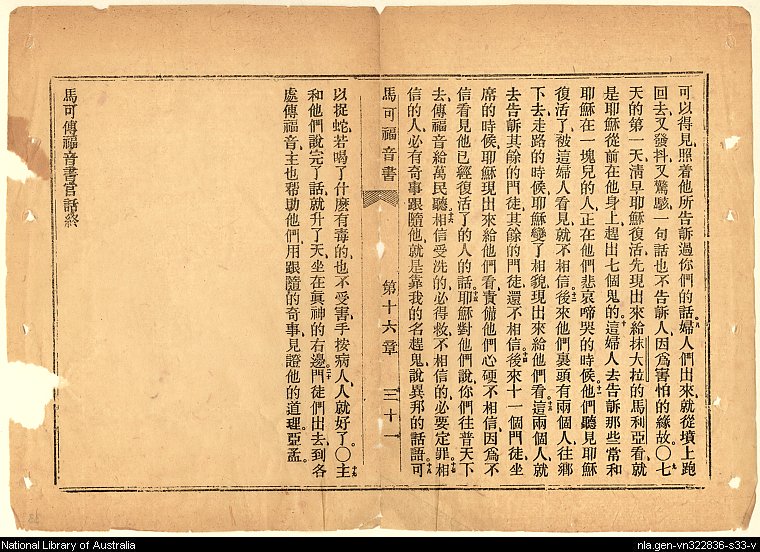 可以得見照着他所告訴過你們的話八婦人們出來就從墳上跑
回去又發抖又驚駭一句話也不告訴人因爲害怕的緣故〇九七
天的第一天清早耶穌復活先現出來給抹大拉的馬利亞看就
是耶穌從前在他身上趕出七個鬼的十這婦人去告訴那些當和
耶穌在一塊兒的人正在他們悲哀啼哭的時候十一他們聽見耶穌
復活了被這婦人看見就不相信十二後來他們裏頭有兩個人往鄉
下去走路的時候耶穌變了相貌現出來給他們看十三這兩個人就
去告訴其餘的門徒其餘的門徒還不相信十四後來十一個門徒坐
席的時候耶穌現出來給他們看責備他們心硬不相信因爲不
信看見他已經復活了的人的話十五耶穌對他們說你們往普天下
去傳福音給萬民聽十六相信受洗的必得救不相信的必要定罪十七相
信的人必有奇事跟隨他就是靠我的名趕鬼說異邦的話語十八可
馬可福音書 第十六章 三十一
以捉蛇若喝了什麼有毒的也不受害手按病人人就好了〇十九主
和他們說完了話就升了天坐在眞神的右邊二十門徒們出去到各
處傳福音主也幫助他們用跟隨的奇事見證他的道理亞孟
馬可傳福音書官話終
National Library of Australia
nla.gen-vn322836-s33-v